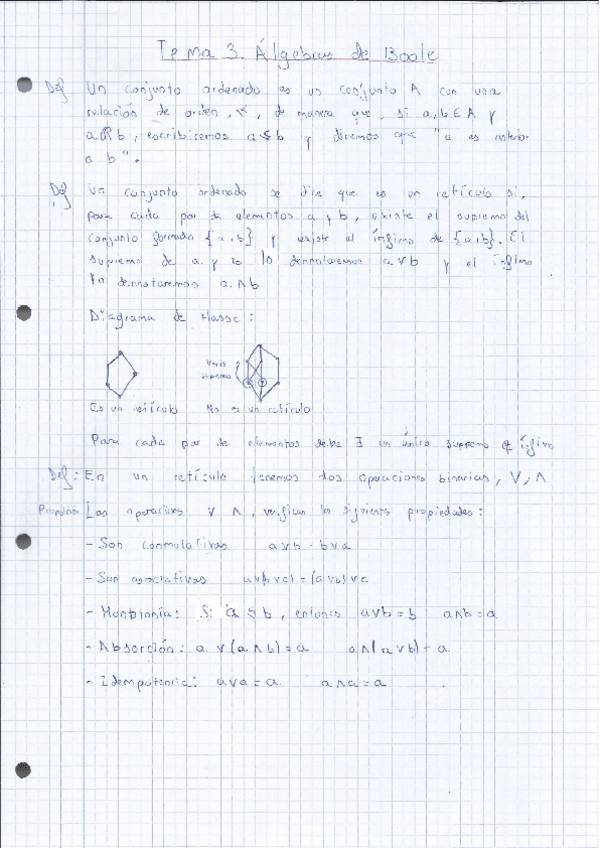 Tema 3. Álgebras de Boole
Def Un conjunto ordenado es un conjunto A con una
relación de orden, ≤, de manera que, si a,b ∈ A y
aRb, escribiremos a ≤ b y diremos que "a es anterior
a b".
Def Un conjunto ordenado se dice que es un retículo si,
para cada par de elementos a y b, existe el supremo del
conjunto formado {a,b} y existe el ínfimo de {a,b}. El
supremo de a y b lo denotaremos a∨b y el ínfimo
lo denotaremos a∧b
Diagrama de Hasse:
Varios
supremos
Es un retículo No es un retículo
Para cada par de elementos debe ∃ un único supremo e ínfimo
Def: En un retículo tenemos dos operaciones binarias, ∨, ∧
Las operaciones ∨ ∧, verifican las siguientes propiedades:
- Son conmutativas a∨b = b∨a
- Son asociativas a∨(b∨c) = (a∨b)∨c
- Monotonía: Si a ≤ b, entonces a∨b = b a∧b = a
- Absorción: a∨(a∧b) = a a∧(a∨b) = a
- Idempotencia: a∨a = a a∧a = a